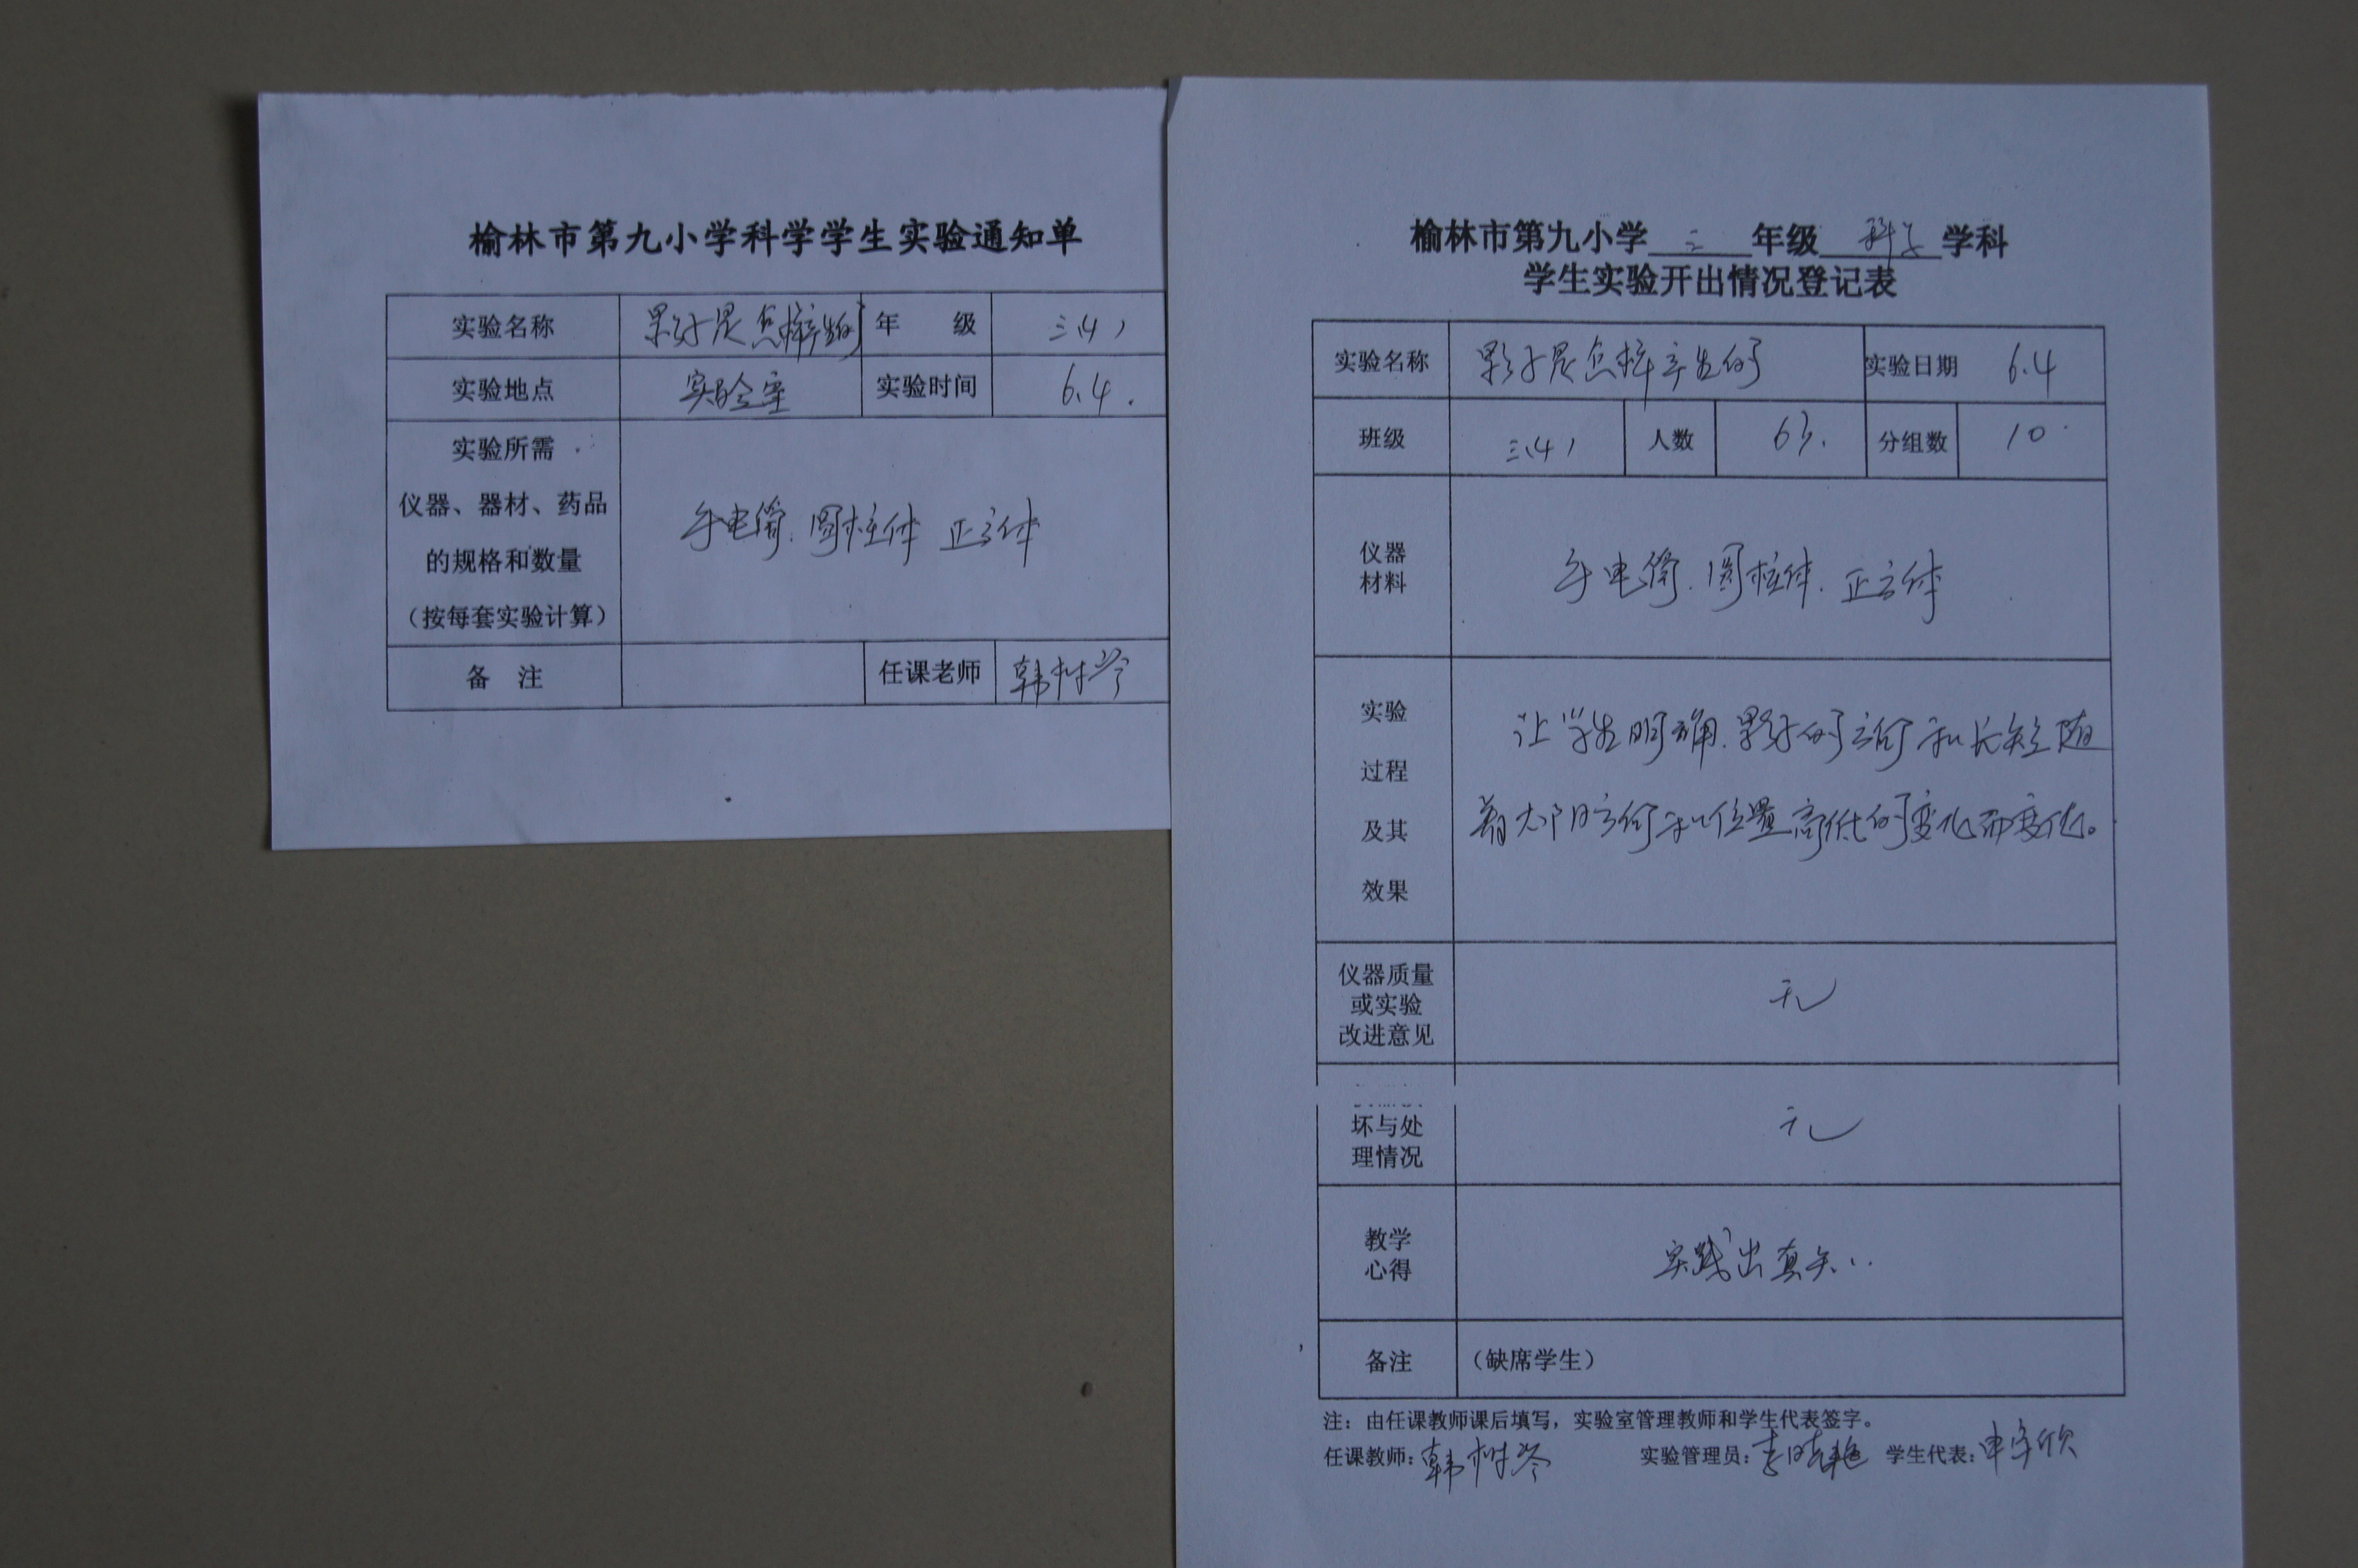 榆林市第九小学科学学生实验通知单
实验名称 影子是怎样产生的 年 级 三(4)
实验地点 实验室 实验时间 6.4.
实验所需
仪器、器材、药品
的规格和数量
(按每套实验计算)
手电筒.圆柱体 正方体
备 注 任课老师 韩树苓
榆林市第九小学 三 年级 科学 学科
学生实验开出情况登记表
实验名称 影子是怎样产生的 实验日期 6.4
班级 三(4) 人数 分组数 10
仪器
材料
手电筒.圆柱体.正方体
实验
过程
及其
效果
让学生明确.影子的方向和长短随
着太阳方向和位置高低的变化而变化。
仪器质量
或实验
改进意见
无
坏与处
理情况
无
教学
心得
实践出真知..
备注 (缺席学生)
注:由任课教师课后填写,实验室管理教师和学生代表签字。
任课教师:韩树苓 实验管理员:李晓艳 学生代表:申宇欣